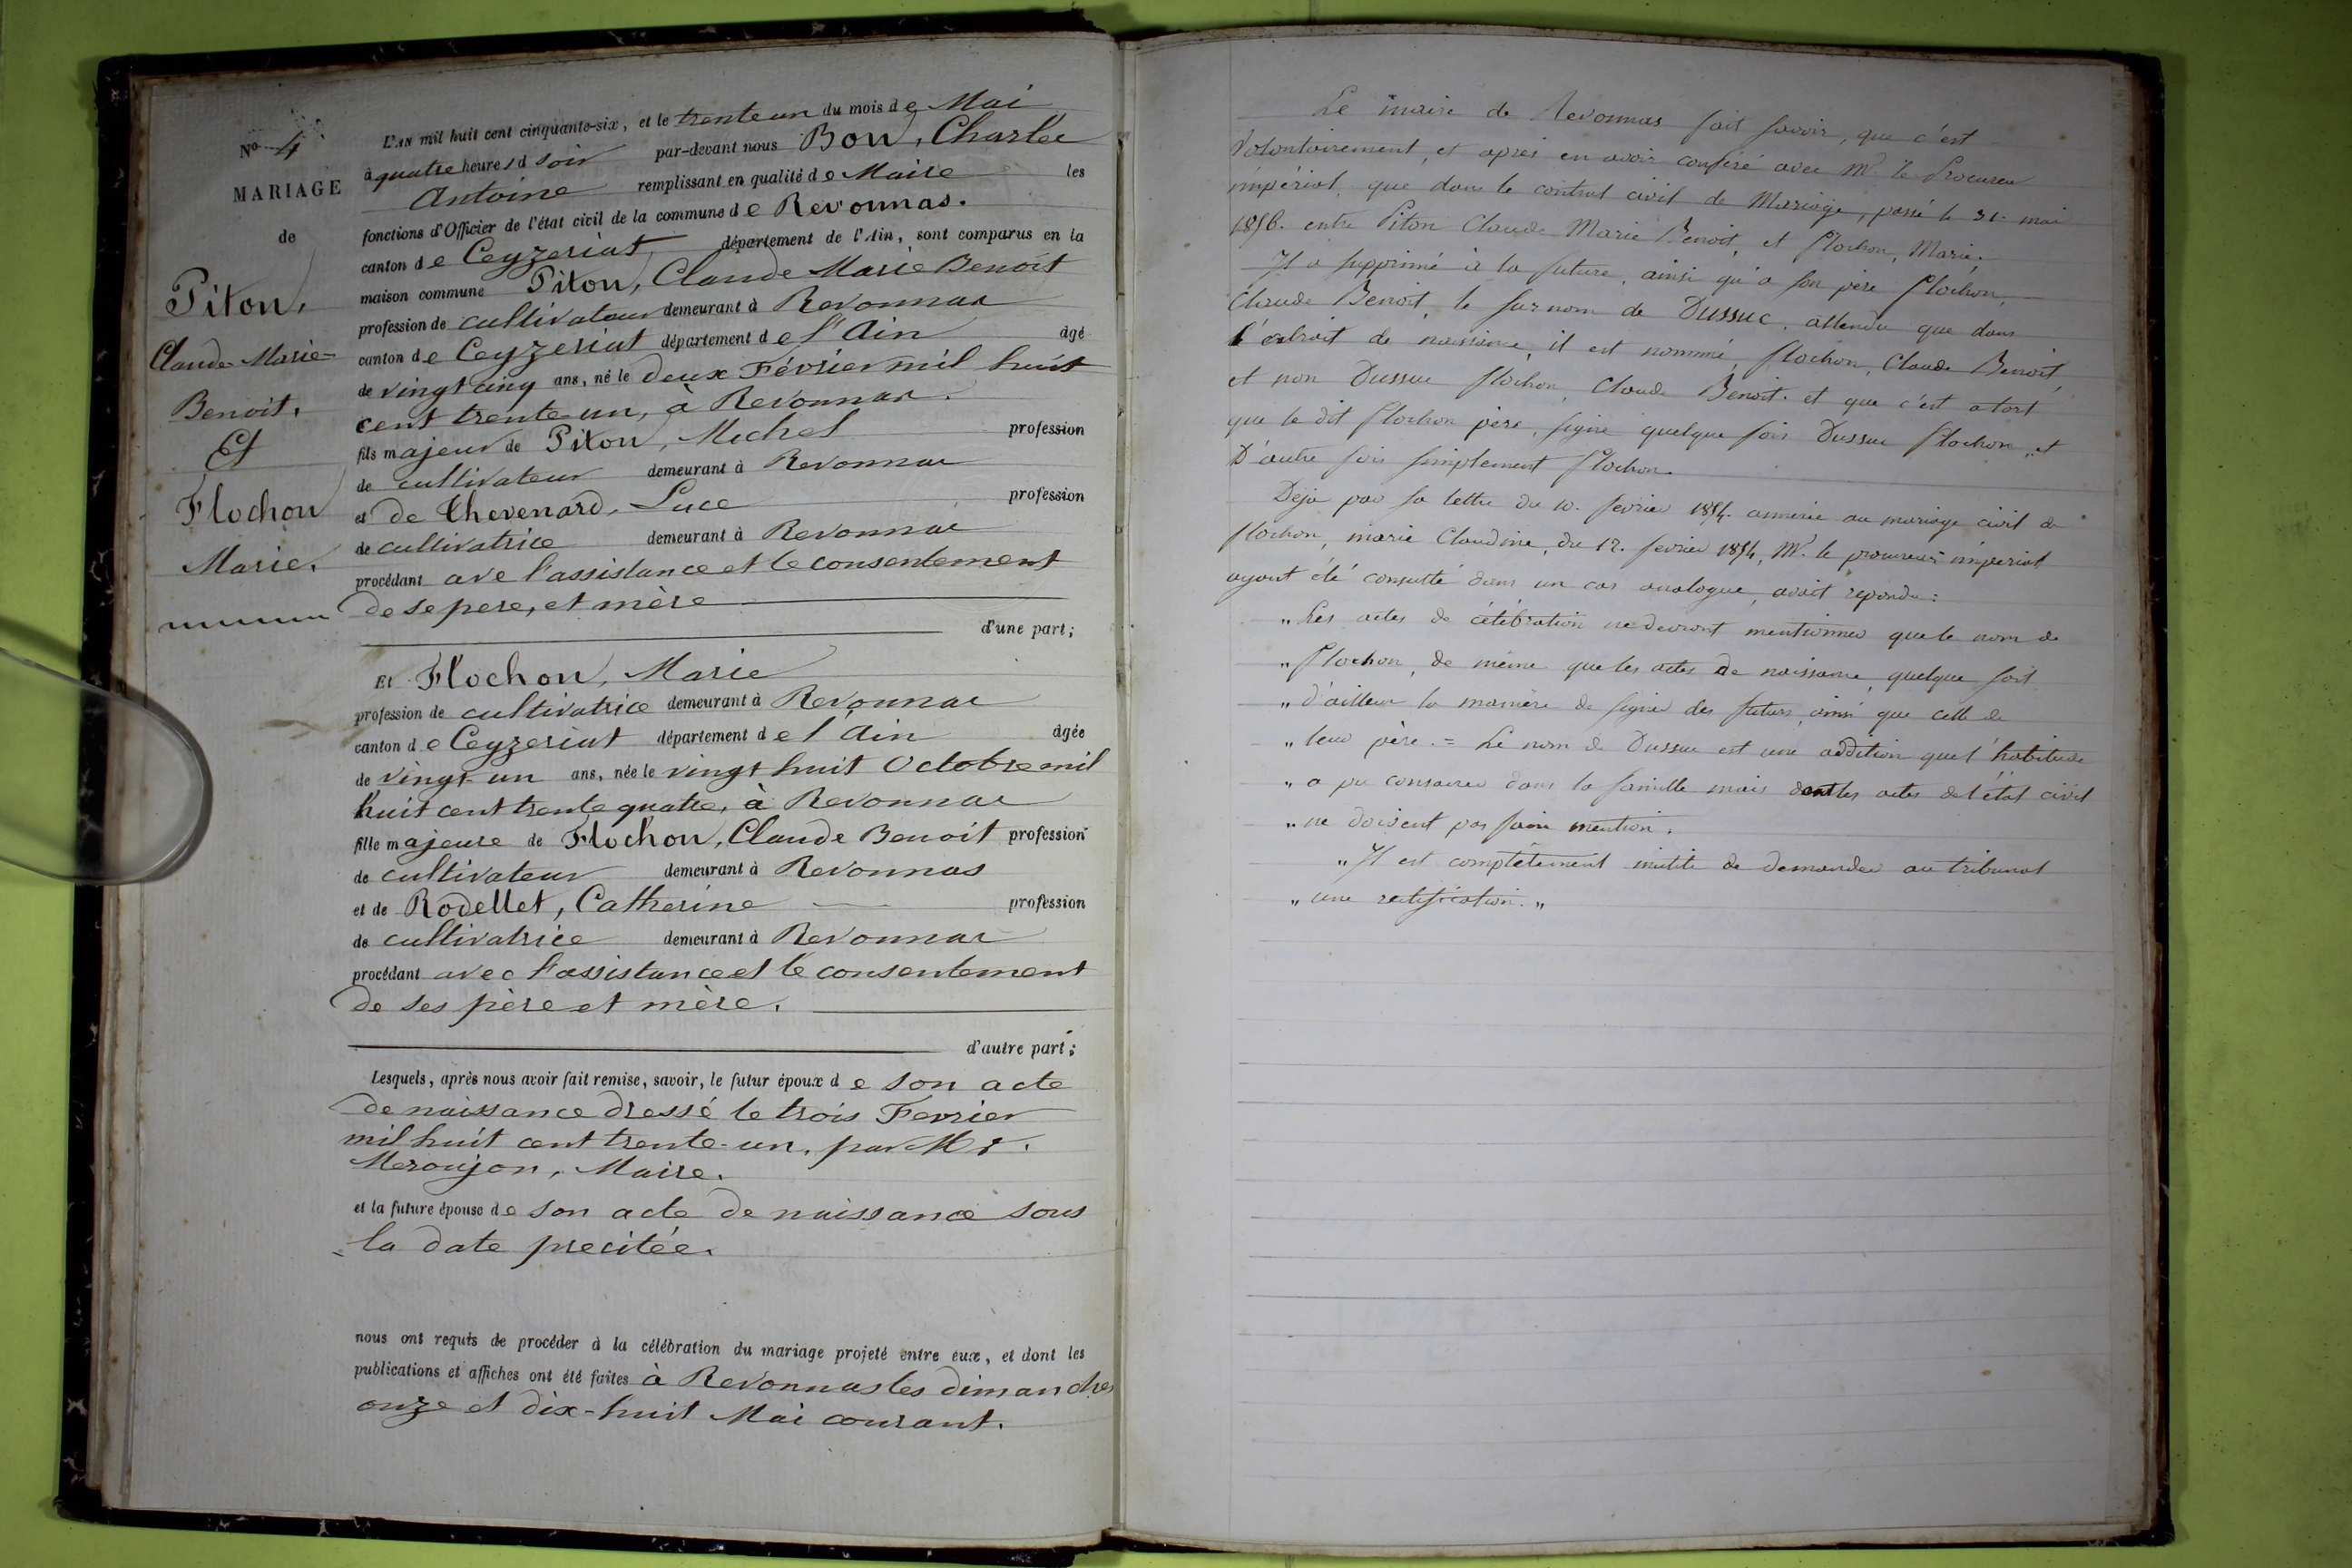 Nº 4
MARIAGE
de
Piton,
Claude-Marie-
Benoit,
Et
Flochon
Marie.
L'AN mil huit cent cinquante-six, et le trente un du mois de Mai
à quatre heures d soir par-devant nous Bon, Charles
Antoine remplissant en qualité de Maire les
fonctions d'Officier de l'état civil de la commune de Revonnas.
canton de Ceyzeriat, département de l'Ain, sont comparus en la
maison commune Piton, Claude Marie Benoit
profession de cultivateur demeurant à Revonnas
canton de Ceyzeriat département de l'Ain âgé
de vingt cinq ans, né le deux Février mil huit
cent trente-un, à Revonnas.
fils majeur de Piton, Michel profession
de cultivateur demeurant à Revonnas
et de Thevenard, Luce profession
de cultivatrice demeurant à Revonnas
procédant ave l'assistance et le consentement
de se pere, et mère
d'une part;
Et Flochon, Marie
profession de cultivatrice demeurant à Revonnas
canton de Ceyzeriat département de l'Ain âgée
de vingt-un ans, née le vingt huit Octobre mil
huit cent trente quatre, à Revonnas
fille majeure de Flochon, Claude Benoit profession
de cultivateur demeurant à Revonnas
et de Rodellet, Catherine profession
de cultivatrice demeurant à Revonnas
procédant avec l'assistance et le consentement
de ses père et mère.
d'autre part;
Lesquels, après nous avoir fait remise, savoir, le futur époux de son acte
de naissance dressé le trois Fevrier
mil huit cent trente-un, par Mr.
Meroujon, Maire.
et la future épouse de son acte de naissance sous
la date precitée.
nous ont requis de procéder à la célébration du mariage projeté entre eux, et dont les
publications et affiches ont été faites à Revonnas les dimanches
onze et dix-huit Mai courant.
Le maire de Revonnas fait savoir, que c'est
Volontairement, et après en avoir conferé avec Mr le Procureur
impérial, que dans le contrat civil de Mariage, passé le 31 mai
1856. entre Piton Claude Marie Benoit, et Flochon, Marie,
Il a supprimé à la future, ainsi qu'a son père Flochon,
Claude Benoit, le surnom de Dussuc, attendu que dans
l'extrait de naissance, il est nommé, flochon, Claude Benoit,
et non Dussuc flochon, Claude Benoit. et que c'est a tort
que le dit flochon père, signe quelque fois Dussuc flochon, et
D'autre fois simplement flochon.
Deja par sa lettre du 10. fevrier 1854. annexée au mariage civil de
flochon, marie Claudine, du 12. fevrier 1854, Mr. le procureur impérial
ayant été consulté dans un cas analogue, avait repondu:
„ Les actes de célébration ne devront mentionner que le nom de
„ flochon, de même que les actes de naissance, quelque soit
„ d'ailleur la manière de signer des futurs, ainsi que celle de
„ leur père. = Le nom de Dussuc est une addition que l'habitude
„ a pu consacrer dans la famille mais dont les actes de l'état civil
„ ne doivent pas faire mention.
„ Il est complètement inutile de demander au tribunal
„ une rectification. „